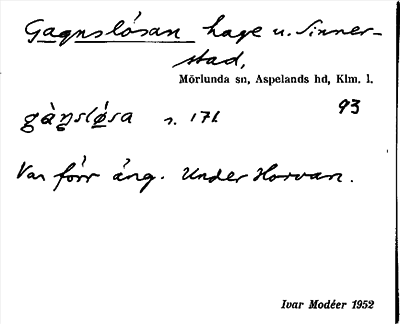 Gagnslösan hage u. Sinner-
stad,
Mörlunda sn, Aspelands hd, Klm. l.
93
gàŋslø̀sa s. 171
Var förr äng. Under Horvan.
Ivar Modéer 1952